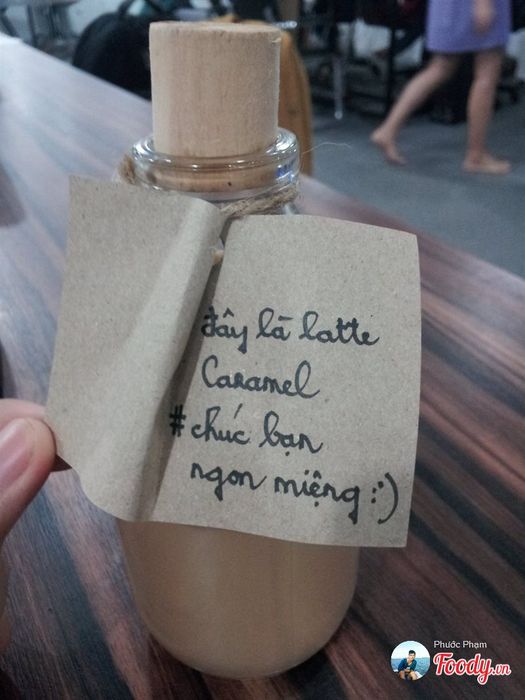 đây là latte
Caramel
# chúc bạn
ngon miệng :)
Phước Phạm
Foody.vn